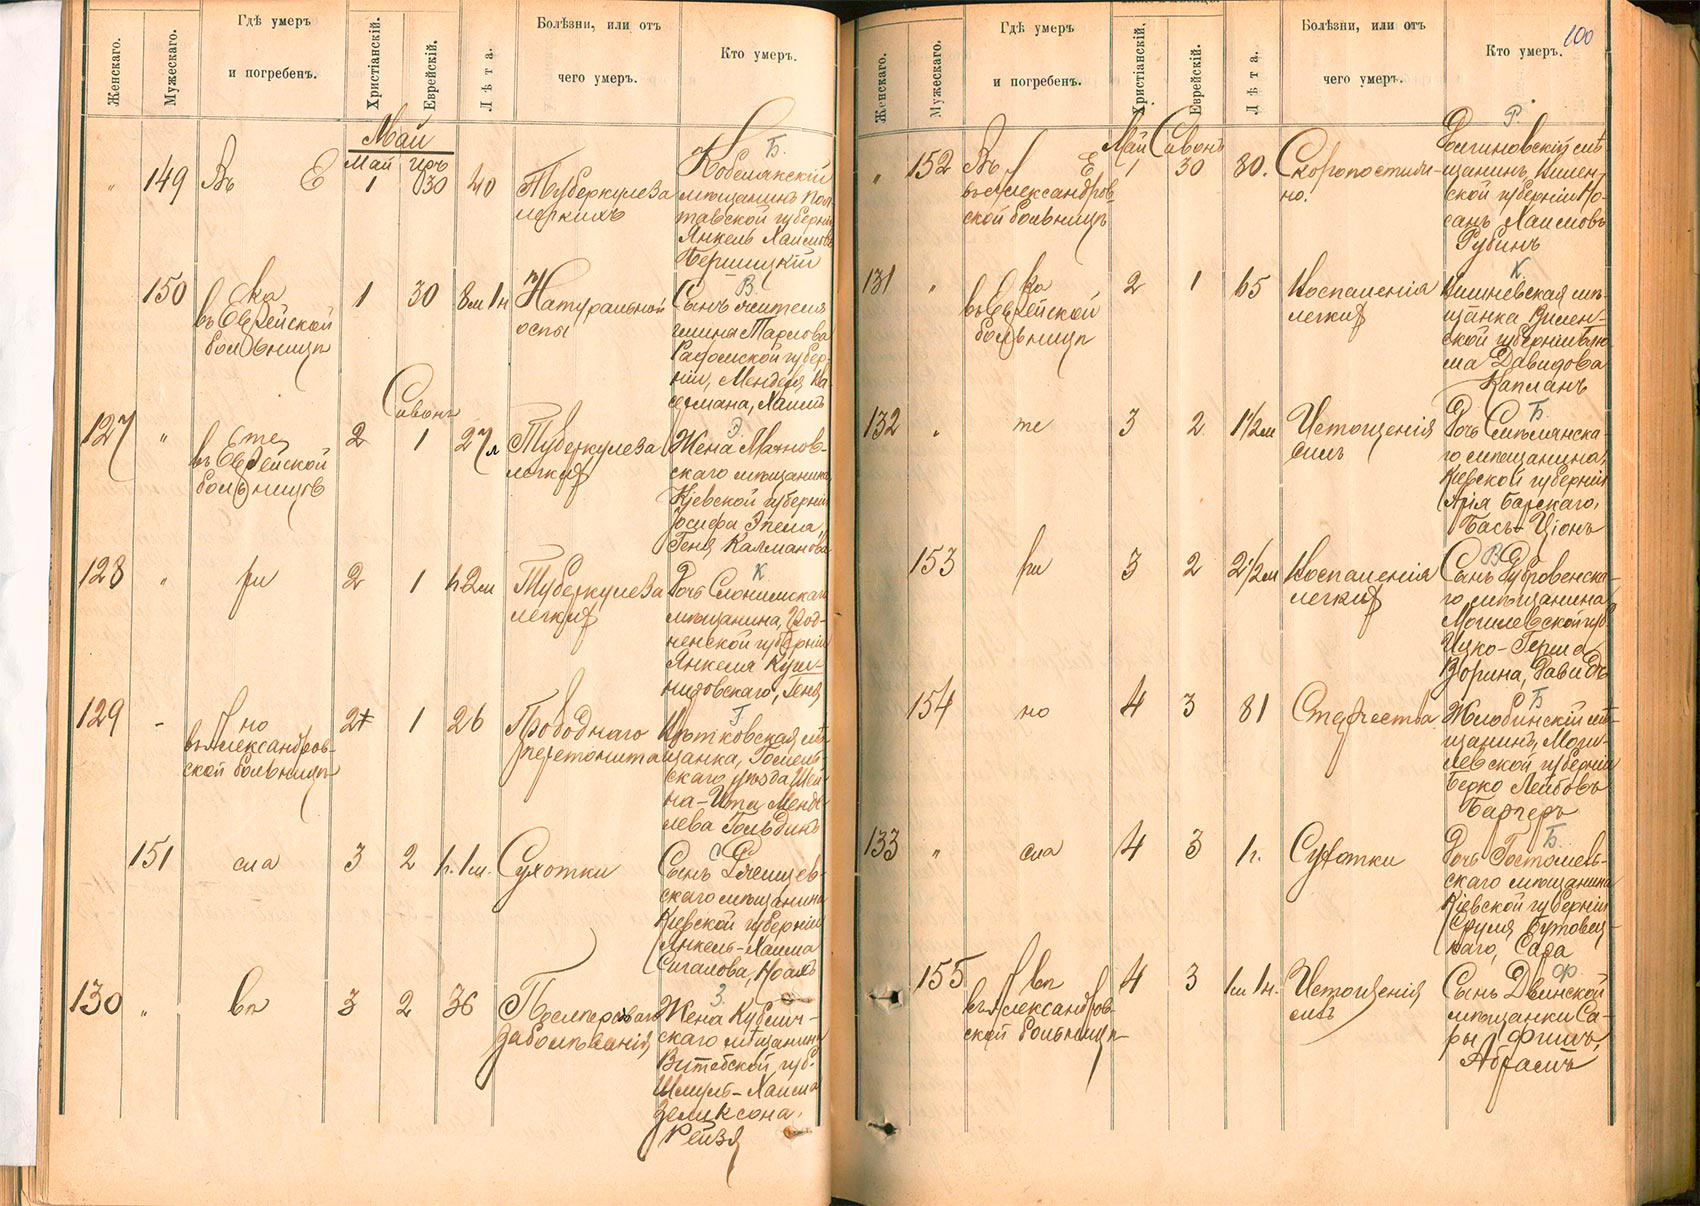 Женскаго.
Мужескаго.
Гдѣ умеръ
и погребенъ.
Христіанскій.
Еврейскій.
Лѣта.
Болѣзни, или отъ
чего умеръ.
Кто умеръ.
Май
Май
1 30
149
Въ
40
Туберкулеза
легкихъ
Б.
Кобелякскій
мѣщанинъ Пол-
тавской губерніи
Янкель Хаимовъ
150
въ Еврейской
больницѣ
1 30 8м 1н
Натуральной
оспы
В
Сынъ жителя
гмины Тарлова
Радомской губер-
ніи, Менделя Ва
сермана, Хаимъ
Сивонъ
127 "
въ Еврейской
больницѣ
2 1 27л
Туберкулеза
легкихъ
Э
Жена
скаго мѣщанина
Кіевской губерніи
Іосифа
Геня Калманова
128 "
2 1
Туберкулеза
легкихъ
К
Дочь Слонимскаго
мѣщанина, Грод-
ненской губерніи
Янкеля Куш-
нировскаго, Геня
129 -
но
въ Александров-
ской больницѣ
1 26
перетонита
Г
щанка, Гомель-
скаго уѣзда, Шей-
на-Ита Менде-
лева Гольдинъ
151
3 2
Сухотки
С
Сынъ
скаго мѣщанина
Кіевской губерніи
Янкель-Хаима
Сигалова,
130 "
3 2 36
заболѣванія
З
Жена Кублич-
скаго мѣщанина
Витебской губ.
Шмуль-Хаима
Зеликсона,
Рейзя
100
Женскаго.
Мужескаго.
Гдѣ умеръ
и погребенъ.
Христіанскій.
Еврейскій.
Лѣта.
Болѣзни, или отъ
чего умеръ.
Кто умеръ.
Май Сивонъ
" 152
Въ
въ Александров-
ской больницѣ
1 30 80.
Скоропостиж-
но.
Р.
Долгиновскій мѣ
щанинъ, Вилен-
ской губерніи
Хаимовъ
Рубинъ
131 "
въ Еврейской
больницѣ
2 1 65
Воспаленія
легкихъ
К.
щанка Вилен-
ской губерніи
Давидова
Капланъ
132
3 2 1 1/2м
Истощенія
силъ
Б.
Дочь Смѣлянска-
го мѣщанина,
Кіевской губерніи
Арія Барскаго,
Бася-Ціонъ
153
3 2 2 1/2м
Воспаленія
легкихъ
В
Сынъ Дубровенска-
го мѣщанина
Могилевской губ
Ицко-Герша
Зорина, Давидъ
154
но
4 3 81
Старчества
Б
Жлобинскій мѣ-
щанинъ, Моги-
левской губерніи
Берко Лейбовъ
Баргеръ
133 "
4 3 1г.
Сухотки
Б.
Дочь Гостомель-
скаго мѣщанина
Кіевской губерніи
Сруля Бутовец-
каго, Сара
155
въ Александров-
ской больницѣ
4 3 1м 1н.
Истощенія
силъ
Ф.
Сынъ Двинской
мѣщанки Са-
ры Фишъ,
Абрамъ